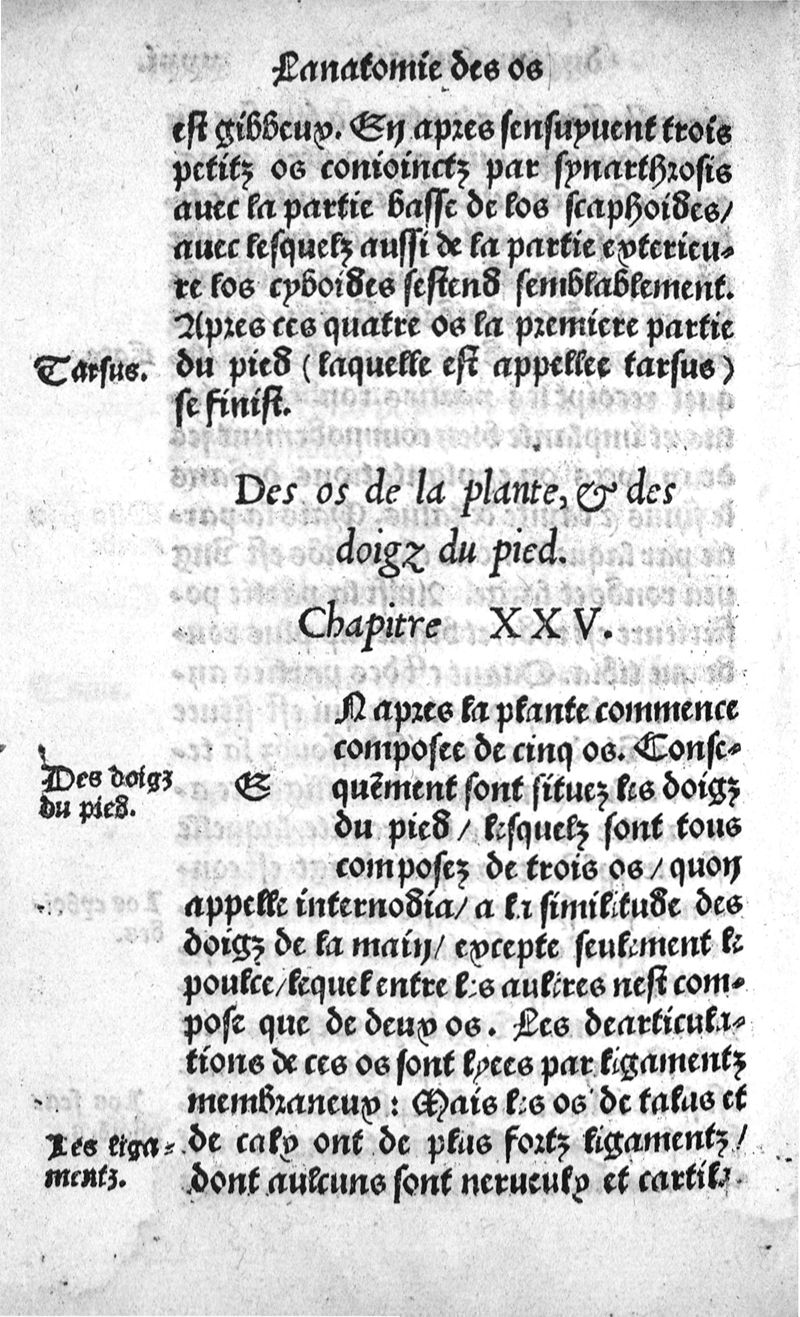 Lanatomie des os
est gibbeux. En apres sensuyuent trois
petitz os conioinctz par synarthrosis
auec la partie basse de los scaphoides/
auec lesquelz aussi de la partie exterieu-
re los cyboides sestend semblablement.
Apres ces quatre os la premiere partie
Tarsus.
du pied (laquelle est appellee tarsus)
se finist.
Des os de la plante, & des
doigz du pied.
Chapitre XXV.
EN apres la plante commence
composee de cinq os. Conse-
Des doigz
du pied.
quẽment sont situez les doigz
du pied/ lesquelz sont tous
composez de trois os/ quon
appelle internodia/ a la similitude des
doigz de la main/ excepte seulement le
poulce/ lequel entre les aultres nest com-
pose que de deux os. Les dearticula-
tions de ces os sont lyees par ligamentz
membraneux: Mais les os de talus et
Les liga-
mentz.
de calx ont de plus fortz ligamentz/
dont aulcuns sont nerueulx et cartil